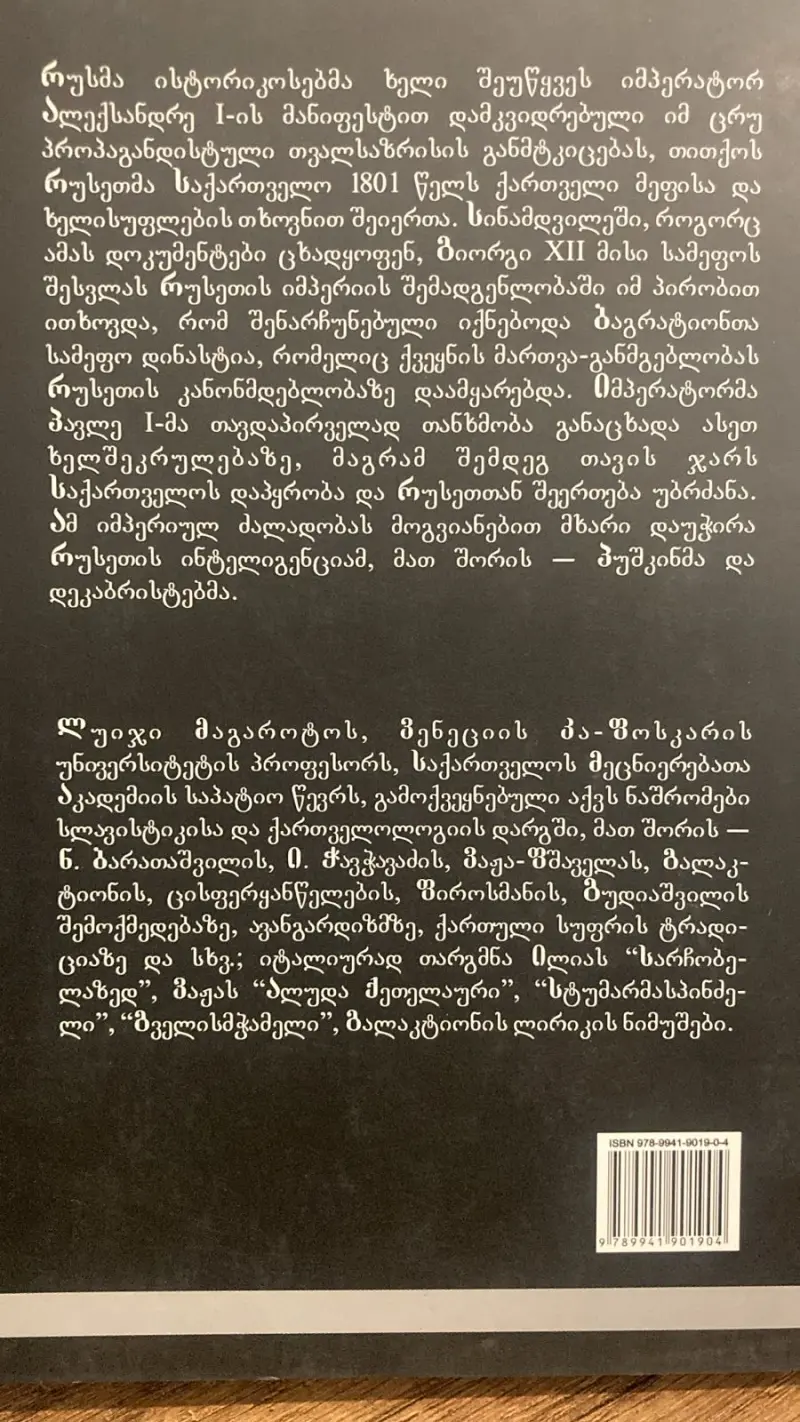 რუსმა ისტორიკოსებმა ხელი შეუწყვეს იმპერატორ
ალექსანდრე I-ის მანიფესტით დამკვიდრებული იმ ცრუ
პროპაგანდისტული თვალსაზრისის განმტკიცებას, თითქოს
რუსეთმა საქართველო 1801 წელს ქართველი მეფისა და
ხელისუფლების თხოვნით შეიერთა. სინამდვილეში, როგორც
ამას დოკუმენტები ცხადყოფენ, გიორგი XII მისი სამეფოს
შესვლას რუსეთის იმპერიის შემადგენლობაში იმ პირობით
ითხოვდა, რომ შენარჩუნებული იქნებოდა ბაგრატიონთა
სამეფო დინასტია, რომელიც ქვეყნის მართვა-განმგებლობას
რუსეთის კანონმდებლობაზე დაამყარებდა. იმპერატორმა
პავლე I-მა თავდაპირველად თანხმობა განაცხადა ასეთ
ხელშეკრულებაზე, მაგრამ შემდეგ თავის ჯარს
საქართველოს დაპყრობა და რუსეთთან შეერთება უბრძანა.
ამ იმპერიულ ძალადობას მოგვიანებით მხარი დაუჭირა
რუსეთის ინტელიგენციამ, მათ შორის — პუშკინმა და
დეკაბრისტებმა.
ლუიჯი მაგაროტოს, ვენეციის კა-ფოსკარის
უნივერსიტეტის პროფესორს, საქართველოს მეცნიერებათა
აკადემიის საპატიო წევრს, გამოქვეყნებული აქვს ნაშრომები
სლავისტიკისა და ქართველოლოგიის დარგში, მათ შორის —
ნ. ბარათაშვილის, ი. ჭავჭავაძის, ვაჟა-ფშაველას, გალაკ-
ტიონის, ცისფერყანწელების, ფიროსმანის, გუდიაშვილის
შემოქმედებაზე, ავანგარდიზმზე, ქართული სუფრის ტრადი-
ციაზე და სხვ.; იტალიურად თარგმნა ილიას “სარჩობე-
ლაზედ”, ვაჟას “ალუდა ქეთელაური”, “სტუმარმასპინძე-
ლი”, “გველისმჭამელი”, გალაკტიონის ლირიკის ნიმუშები.
ISBN 978-9941-9019-0-4
9 789941 901904